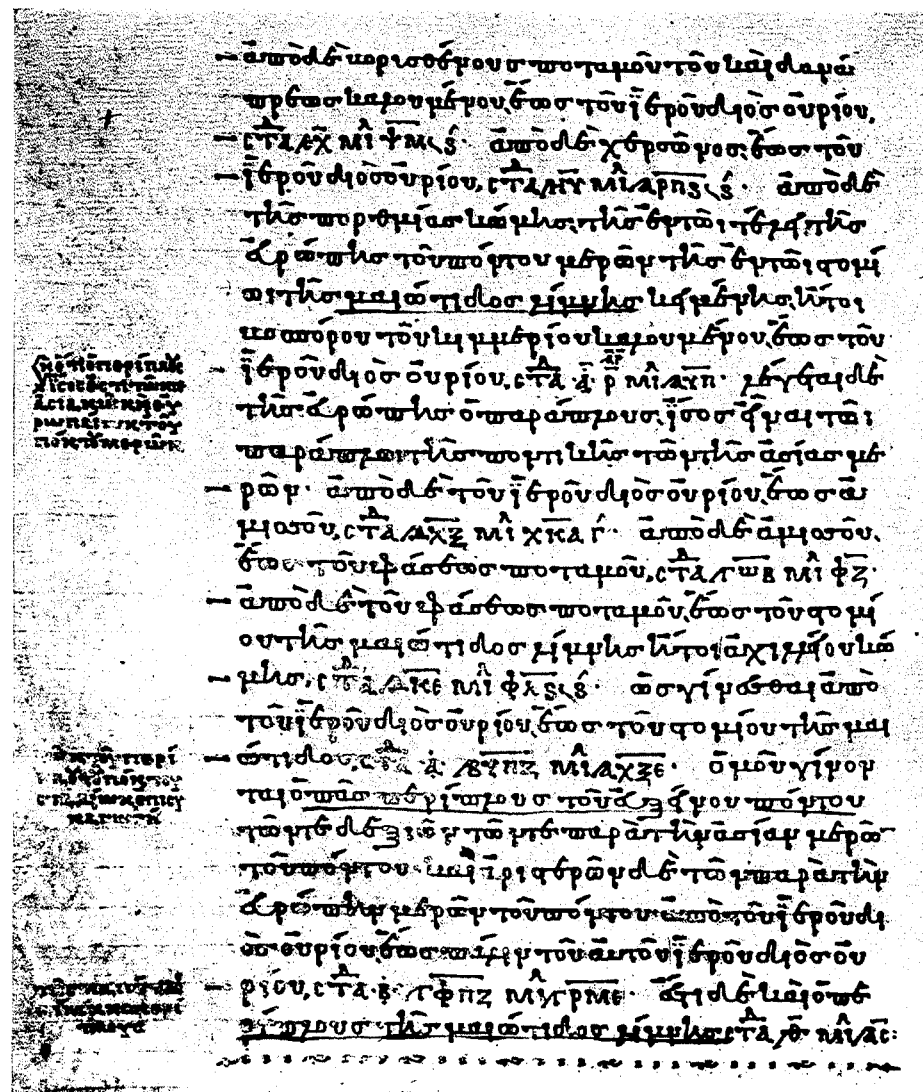 ἀπὸ δὲ βορισθένους ποταμοῦ τοῦ καὶ δανά
πρεως καλουμένου, ἕως τοῦ ἱεροῦ διὸς οὐρίου,
στά ͵εχ μι ψμς ς´· ἀπὸ δὲ χερσῶνος, ἕως τοῦ
ἱεροῦ διὸς οὐρίου, στά ͵ηυ μι ͵αρπς ς´· ἀπὸ δὲ
τῆς πορθμίας κώμης, τῆς ἐν τῶι τέλει τῆς
εὐρώπης τοῦ πόντου μερῶν τῆς ἐν τῶι στομί
ωι τῆς μαιώτιδος λίμνης κειμένης, ἤτοι
βοσπόρου τοῦ κιμμερίου καλουμένου, ἕως τοῦ
ἱεροῦ διὸς οὐρίου, στά ἀ ͵ρ μι ͵αυπ· λέγεται δὲ
τῆς εὐρώπης ὁ παράπλους, ἴσος εἶναι τῶι
παράπλωι τῆς ποντικῆς τῶν τῆς ἀσίας με
ρῶν· ἀπὸ δὲ τοῦ ἱεροῦ διὸς οὐρίου, ἕως ἀ
μισοῦ, στά ͵δχξ μι χκα γ´· ἀπὸ δὲ ἀμισοῦ,
ἕως τοῦ φάσεως ποταμοῦ, στά ͵γωβ μι φζ·
ἀπὸ δὲ τοῦ φάσεως ποταμοῦ, ἕως τοῦ στομί
ου τῆς μαιώτιδος λίμνης ἤτοι ἀχιλλίου κώ
μης, στά ͵δκε μι φλς ς´· ὡς γίνεσθαι ἀπὸ
τοῦ ἱεροῦ διὸς οὐρίου, ἕως τοῦ στομίου τῆς μαι
ώτιδος, στά ἀ ͵βυπζ μι ͵αχξε· ὁμοῦ γίνον
ται ὁ πᾶς περίπλους τοῦ εὐξείνου πόντου
τῶν τε δεξιῶν τῶν τε παρὰ τὴν ἀσίαν μερῶ
τοῦ πόντου καὶ ἀριστερῶν δὲ τῶν παρὰ τὴν
εὐρώπην μερῶν τοῦ πόντου ἀπὸ τοῦ ἱεροῦ δι
ὸς οὐρίου ἕως πάλιν τοῦ αὐτοῦ ἱεροῦ διὸς οὐ
ρίου, στά β ͵γφπζ μι ͵γρμε· ἔτι δὲ καὶ ὁ πε
ρίπλους τῆς μαιώτιδος λίμνης στά ͵θ μι ͵ας: